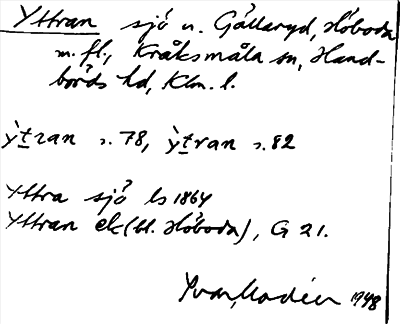 Yttran sjö n. Gällaryd, Höboda
m. fl., Kråksmåla sn, Hand-
börds hd, Klm. l.
ỳtran s. 78, ỳtran s. 82
Yttra sjö ls 1864
Yttran ek (bl. Höboda), G 21.
Yvar Modéer 1948